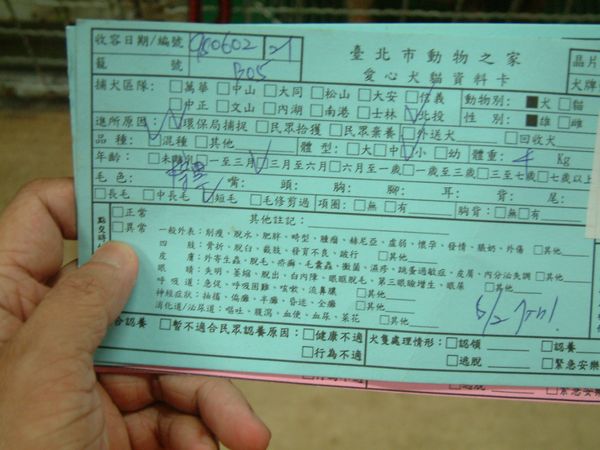 收容日期/編號 980602 21
臺北市動物之家
晶片
籠號 B05
愛心犬貓資料卡
犬牌
捕犬區隊: □萬華 □中山 □大同 □松山 □大安 □信義 動物別: ■犬 □貓
□中正 □文山 □內湖 □南港 □士林 □北投 性別: ■雄 □雌
進所原因: □環保局捕捉 □民眾拾獲 □民眾棄養 □外送犬 □回收犬
品種: □混種 □其他 體型: □大 □中 □小 □幼 體重: Kg
年齡: □未離乳 □一至三月 □三月至六月 □六月至一歲 □一歲至三歲 □三至七歲 □七歲以上
毛色: 嘴: 頭: 胸: 腳: 耳: 背: 尾:
□長毛 □中長毛 □短毛 □毛修剪過 項圈: □無 □有 胸背: □無 □有
點交時 □正常 其他註記:
□異常 一般外表: 削瘦、脫水、肥胖、畸型、腫瘤、赫尼亞、虛弱、懷孕、發情、脹奶、外傷 □其他
四肢: 骨折、脫臼、截肢、發育不良、跛行 □其他
皮膚: 外寄生蟲、脫毛、疥癬、毛囊蟲、黴菌、濕疹、跳蚤過敏症、皮屑、內分泌失調 □其他
眼睛: 失明、萎縮、脫出、白內障、眼瞼脫毛、第三眼瞼增生、眼屎 □其他
呼吸道: 急促、呼吸困難、咳嗽、流鼻膿 □其他
神經症狀: 抽搐、偏癱、半癱、昏迷、全癱 □其他
消化道/泌尿道: 嘔吐、腹瀉、血便、血尿、菜花 □其他
合認養 □暫不適合民眾認養原因: □健康不適 犬隻處理情形: □認領 □認養
□行為不適 □逃脫 □緊急安樂